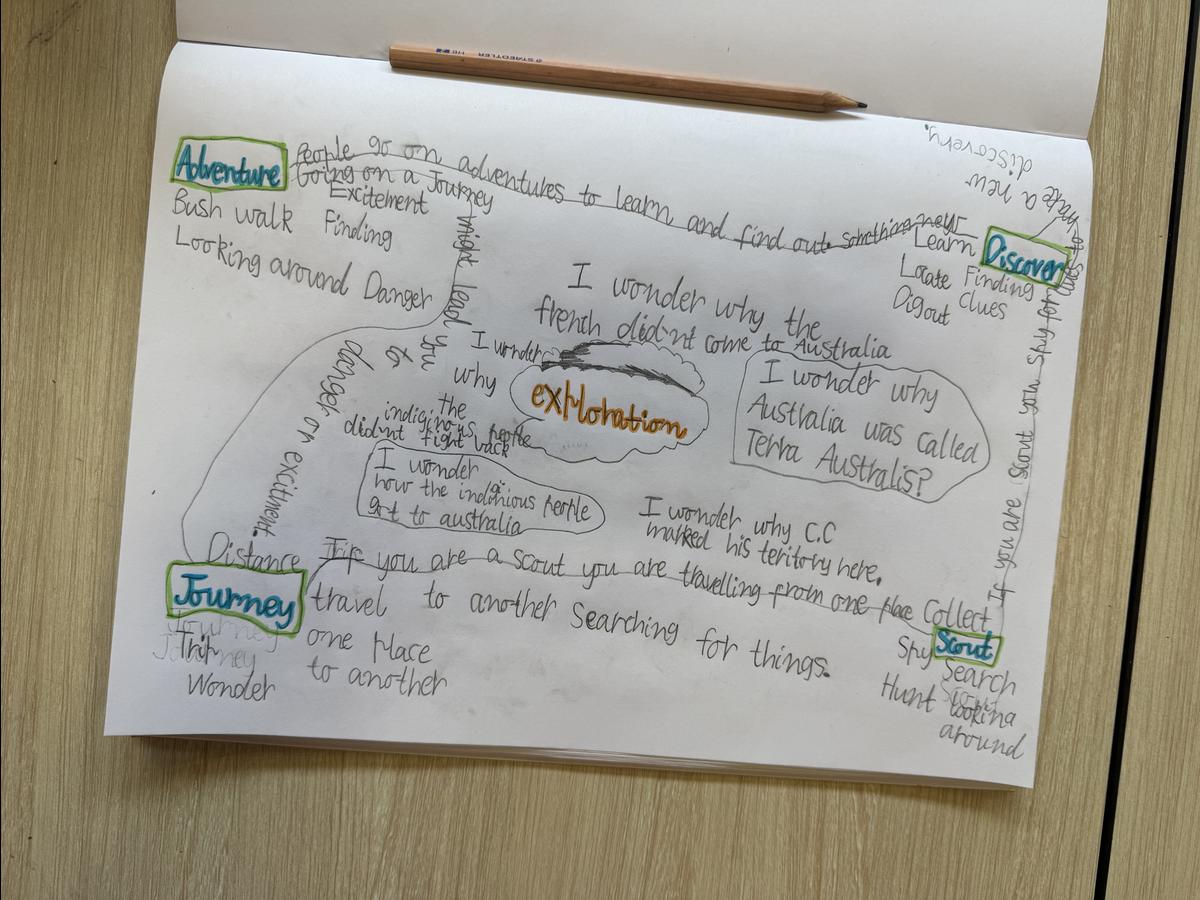 STAEDTLER HB
Adventure
People go on adventures to learn and find out something new
Going on a Journey
might lead you
to
danger or excitment.
Excitement
Bush walk Finding
Looking around Danger
make a new
discovery.
Discover
Learn
Locate Finding
Digout Clues
I wonder why the
french didn't come to Australia
I wonder
why
the
indiginous people
didn't fight back
exploration
I wonder why
Australia was called
Terra Australis?
I wonder
how the indiginious people
got to australia
I wonder why C.C
marked his teritory here.
If you are Scout you spy for
Distance
Journey
Journey
Trip
Journey
Wonder
travel
one place
to another
If you are a scout you are travelling from one place
to another Searching for things.
Collect
Scout
Spy
Search
Hunt looking
around